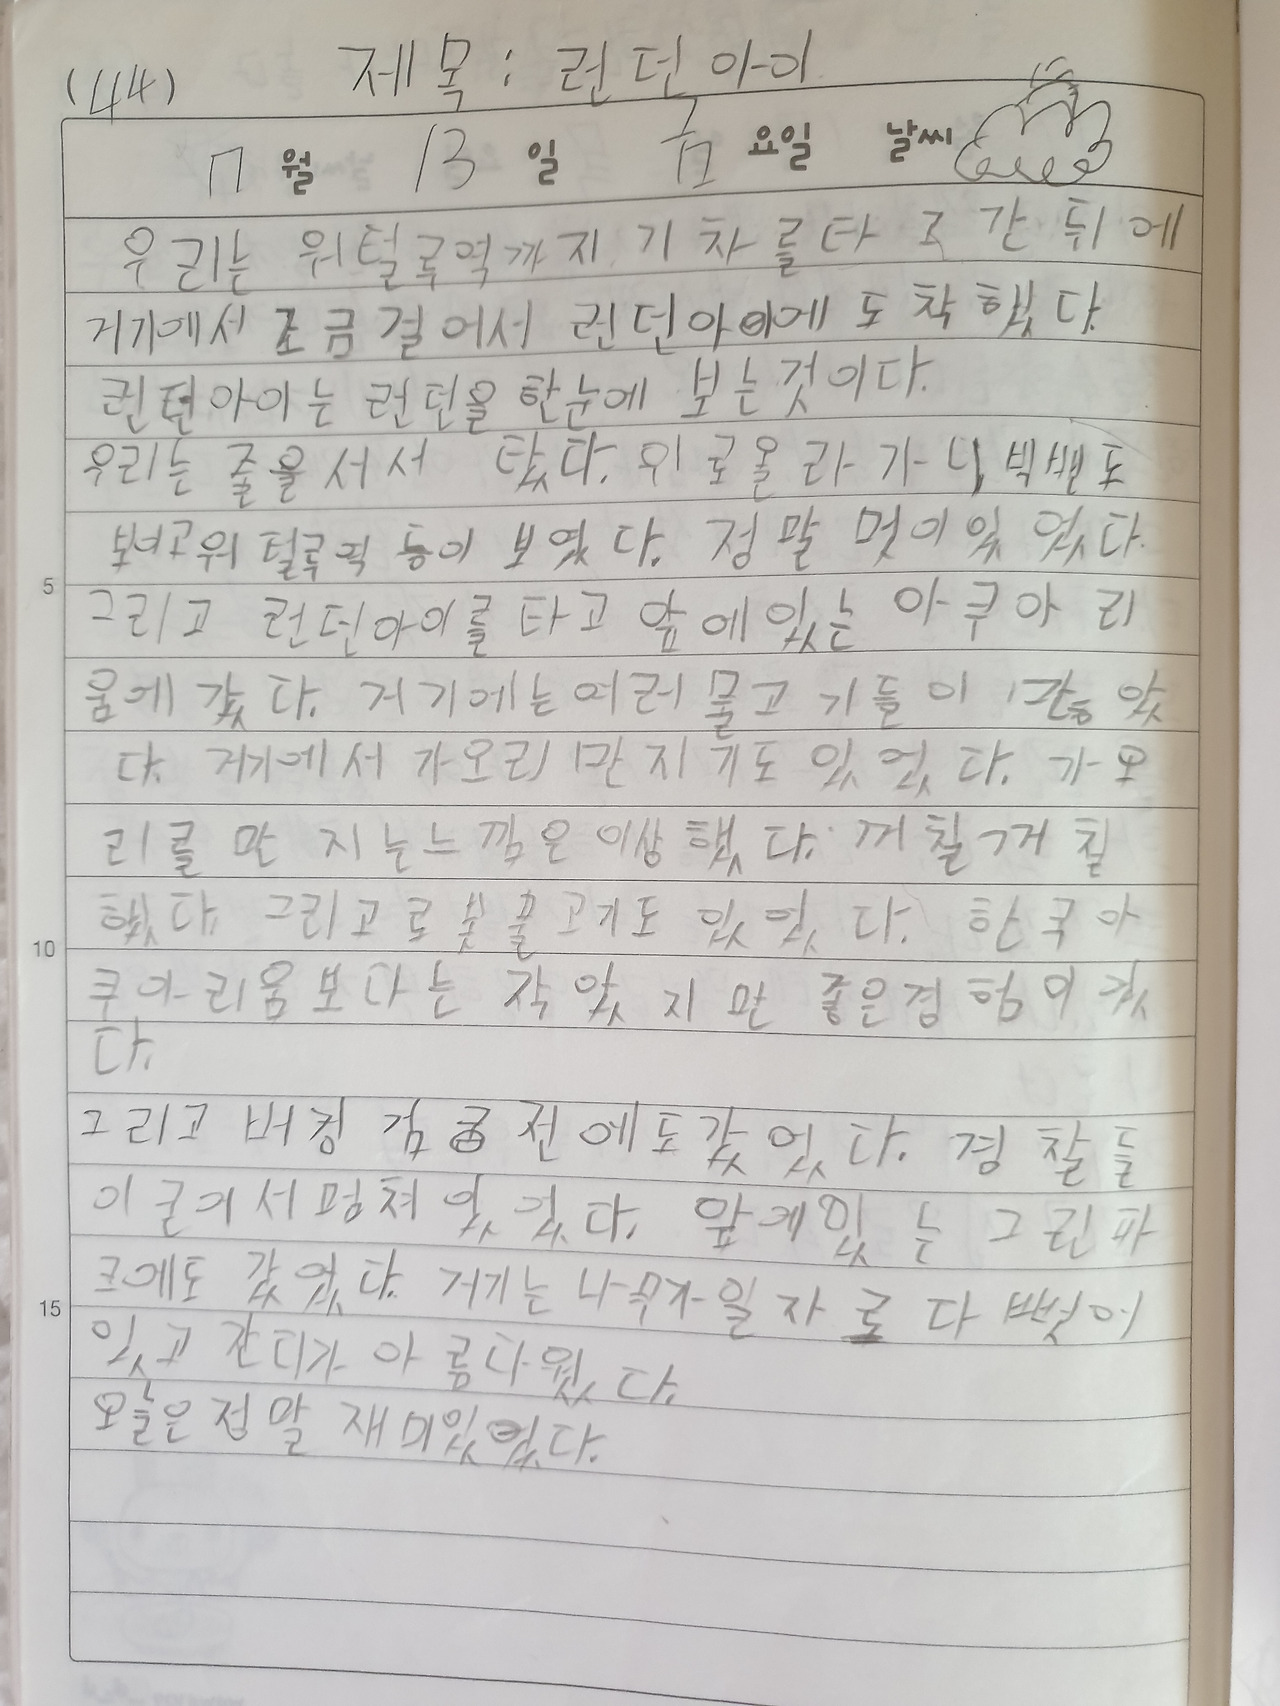 (44) 제목: 런던아이
7월 13일 금요일 날씨
우리는 워털루역까지 기차를타고 간 뒤에
거기에서 조금 걸어서 런던아이에 도착했다.
런던아이는 런던을 한눈에 보는것이다.
우리는 줄을서서 탔다. 위로올라가니, 빅밴도
보이고워털루역 등이 보였다. 정말 멋이있었다.
그리고 런던아이를 타고 앞에있는 아쿠아리
움에 갔다. 거기에는여러물고기들이 많았
다. 거기에서 가오리만지기도 있었다. 가오
리를 만지는느낌은이상했다. 꺼칠꺼칠
했다. 그리고 로봇물고기도 있었다. 한국아
쿠아리움보다는 작았지만 좋은경험이였
다.
그리고 버킹검궁전에도갔었다. 경찰들
이 굳어서멈춰있었다. 앞에있는 그린파
크에도 갔었다. 거기는 나무가일자로 다 뻗어
있고 잔디가 아름다웠다.
오늘은정말 재미있었다.
5
10
15